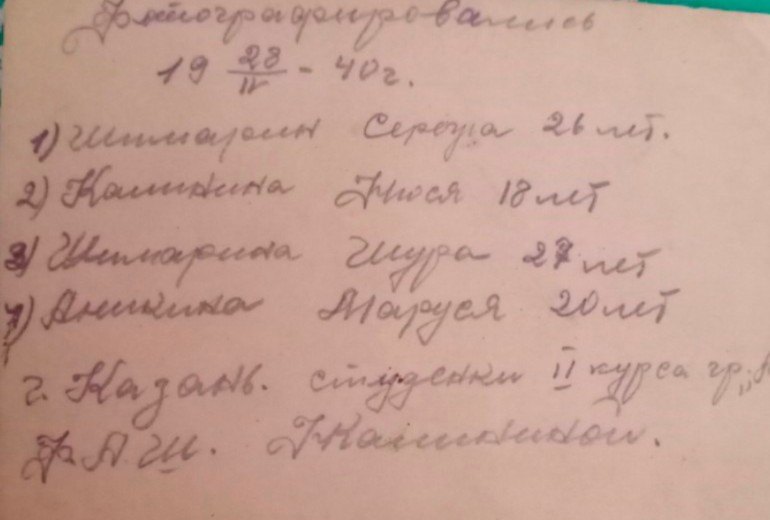 Фотографировались
19 28/IV - 40 г.
1) Шимарин Сергуша 26 лет.
2) Калинина Нюся 18 лет
3) Шимарина Шура 27 лет
4) Аникина Маруся 20 лет
г. Казань. студенки II курса гр. „
Ф.А.Ш. Калининой.